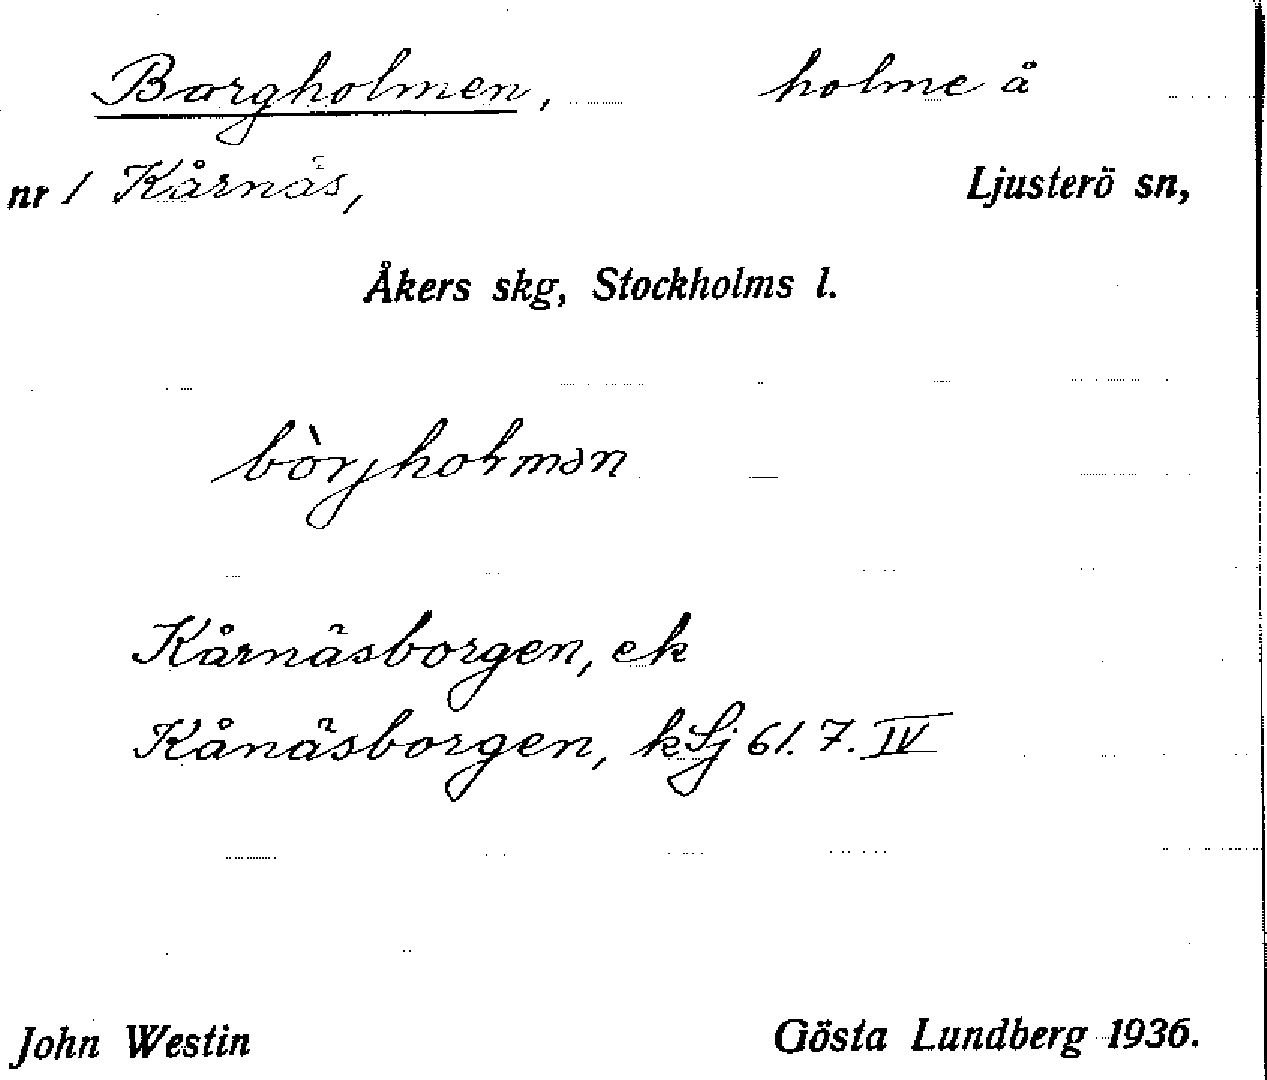 Borgholmen, holme å
nr 1 Kårnäs, Ljusterö sn,
Åkers skg, Stockholms l.
bòrjholmən
Kårnäsborgen, ek
Kånäsborgen, kSj 61. 7. IV
John Westin Gösta Lundberg 1936.